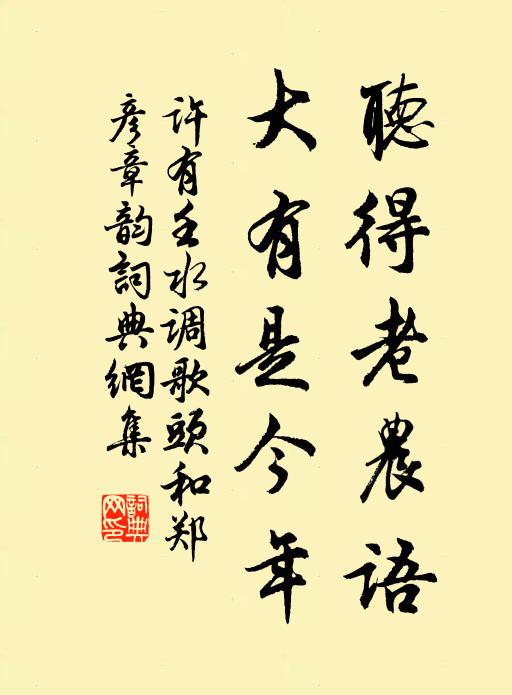 聽得老農語
大有是今年
许有壬水调歌頭和郑
彦章韵詞典網集
詞典
网印